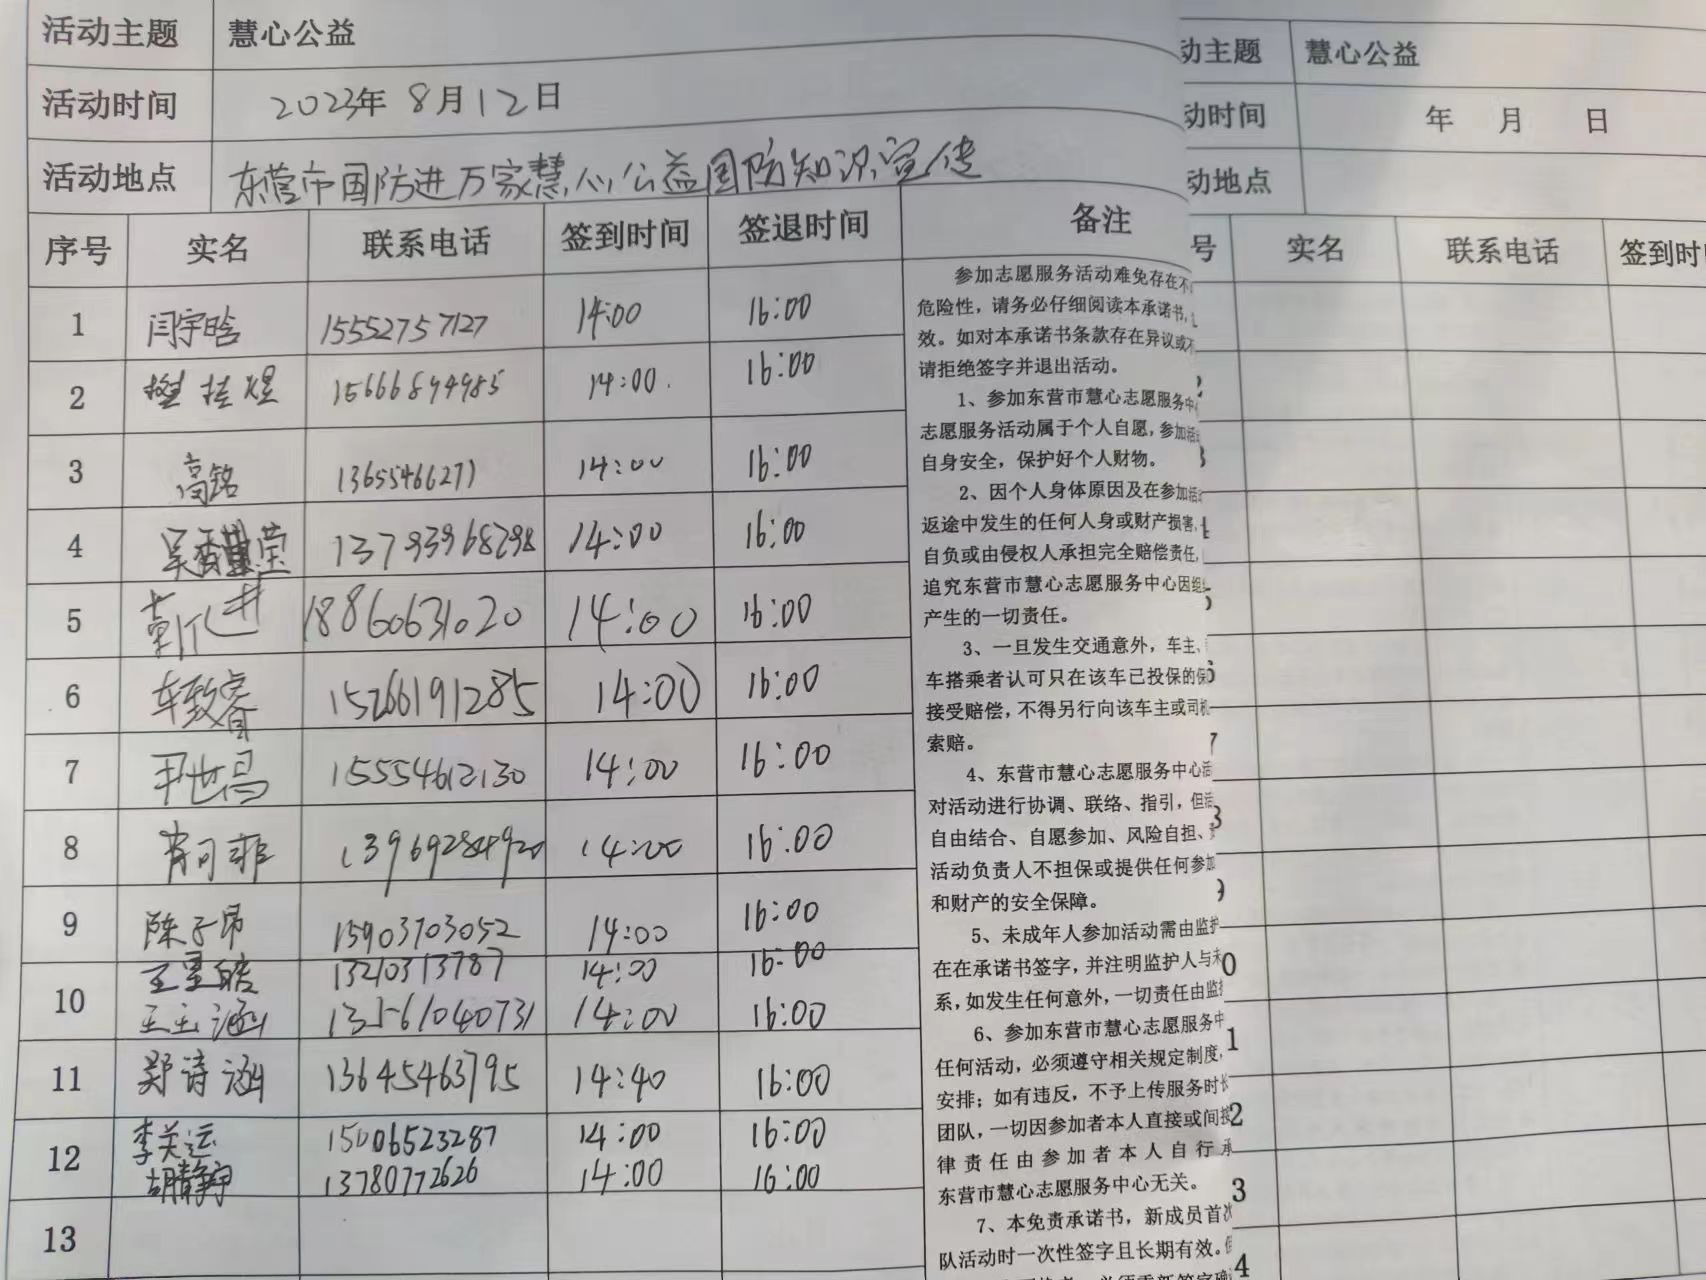 活动主题 慧心公益
活动时间 2023年 8月12日
活动地点 东营市国防进万家慧心公益国防知识宣传
序号 实名 联系电话 签到时间 签退时间 备注
1 闫宇晗 15552757127 14:00 16:00
2 15666894985 14:00 16:00
3 高铭 13655466271 14:00 16:00
4 13793968298 14:00 16:00
5 18860631020 14:00 16:00
6 车致睿 15266191285 14:00 16:00
7 15554612130 14:00 16:00
8 肖可菲 13969284920 14:00 16:00
9 陈子昂 15903703052 14:00 16:00
10 王星皓 13210313787 14:00 16:00
王主涵 13561040731 14:00 16:00
11 郑诗涵 13645463795 14:40 16:00
12 李关运 15006523287 14:00 16:00
胡静宇 13780772626 14:00 16:00
13
参加志愿服务活动难免存在不
危险性，请务必仔细阅读本承诺书，
效。如对本承诺书条款存在异议或不
请拒绝签字并退出活动。
1、参加东营市慧心志愿服务中
志愿服务活动属于个人自愿，参加活
自身安全，保护好个人财物。
2、因个人身体原因及在参加活
返途中发生的任何人身或财产损害，
自负或由侵权人承担完全赔偿责任，
追究东营市慧心志愿服务中心因组
产生的一切责任。
3、一旦发生交通意外，车主、
车搭乘者认可只在该车已投保的保
接受赔偿，不得另行向该车主或司机
索赔。
4、东营市慧心志愿服务中心活
对活动进行协调、联络、指引，但活
自由结合、自愿参加、风险自担、
活动负责人不担保或提供任何参加
和财产的安全保障。
5、未成年人参加活动需由监护
在在承诺书签字，并注明监护人与未
系，如发生任何意外，一切责任由监护
6、参加东营市慧心志愿服务中
任何活动，必须遵守相关规定制度，
安排；如有违反，不予上传服务时长
团队，一切因参加者本人直接或间接
律责任由参加者本人自行承
东营市慧心志愿服务中心无关。
7、本免责承诺书，新成员首次
队活动时一次性签字且长期有效。但
动主题 慧心公益
动时间 年 月 日
动地点
号 实名 联系电话 签到时
7
9
0
1
2
3
4